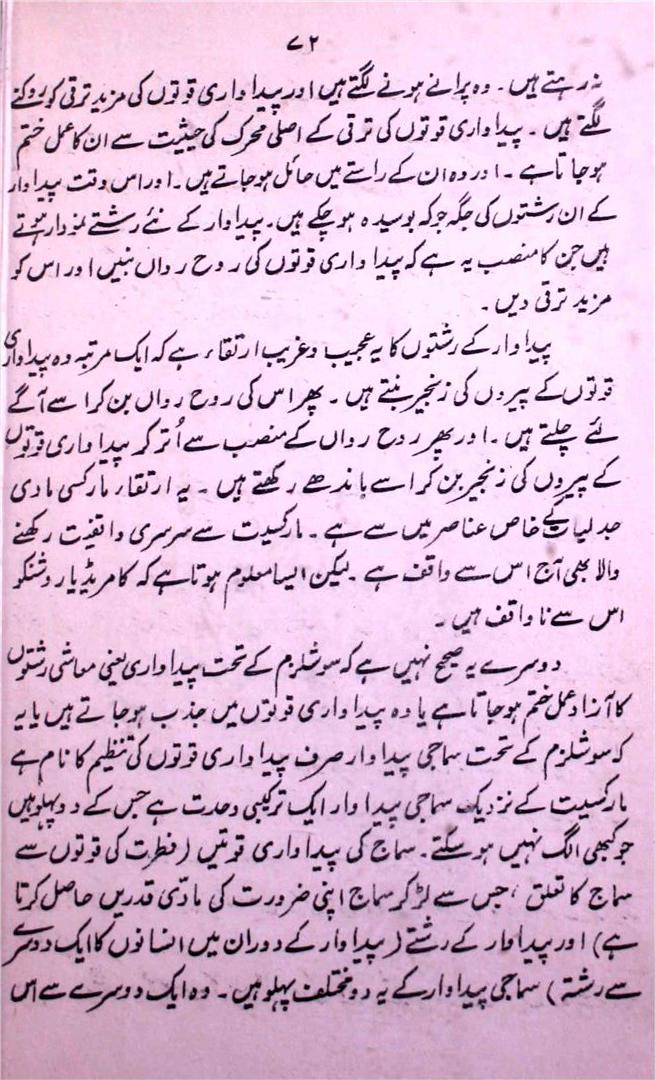 ۷۲
نہ رہتے ہیں۔ وہ پرانے ہونے لگتے ہیں اور پیداواری قوتوں کی مزید ترقی کو روکنے
لگتے ہیں۔ پیداواری قوتوں کی ترقی کے اصلی محرک کی حیثیت سے ان کا عمل ختم
ہو جاتا ہے۔ اور وہ ان کے راستے میں حائل ہو جاتے ہیں۔ اور اس وقت پیداوار
کے ان رشتوں کی جگہ جو کہ بوسیدہ ہو چکے ہیں۔ پیداوار کے نئے رشتے نمودار ہوتے
ہیں جن کا منصب یہ ہے کہ پیداواری قوتوں کی روح رواں بنیں اور اس کو
مزید ترقی دیں۔
پیداوار کے رشتوں کا یہ عجیب و غریب ارتقاء ہے کہ ایک مرتبہ وہ پیداواری
قوتوں کے پیروں کی زنجیر بنتے ہیں۔ پھر اس کی روح رواں بن کر اسے آگے
لئے چلتے ہیں۔ اور پھر روح رواں کے منصب سے اُتر کر پیداواری قوتوں
کے پیروں کی زنجیر بن کر اسے باندھے رکھتے ہیں۔ یہ ارتقاء مارکسی مادی
جدلیات کے خاص عناصر میں سے ہے۔ مارکسیت سے سرسری واقفیت رکھنے
والا بھی آج اس سے واقف ہے۔ لیکن ایسا معلوم ہوتا ہے کہ کامریڈ یاروشنکو
اس سے ناواقف ہیں۔
دوسرے یہ صحیح نہیں ہے کہ سوشلزم کے تحت پیداواری یعنی معاشی رشتوں
کا آزاد عمل ختم ہو جاتا ہے یا وہ پیداواری قوتوں میں جذب ہو جاتے ہیں یا یہ
کہ سوشلزم کے تحت سماجی پیداوار صرف پیداواری قوتوں کی تنظیم کا نام ہے
مارکسیت کے نزدیک سماجی پیداوار ایک ترکیبی وحدت ہے جس کے دو پہلو ہیں
جو کبھی الگ نہیں ہو سکتے۔ سماج کی پیداواری قوتیں (فطرت کی قوتوں سے
سماج کا تعلق، جس سے لڑ کر سماج اپنی ضرورت کی مادّی قدریں حاصل کرتا
ہے) اور پیداوار کے رشتے (پیداوار کے دوران میں انسانوں کا ایک دوسرے
سے رشتہ) سماجی پیداوار کے یہ دو مختلف پہلو ہیں۔ وہ ایک دوسرے سے اس